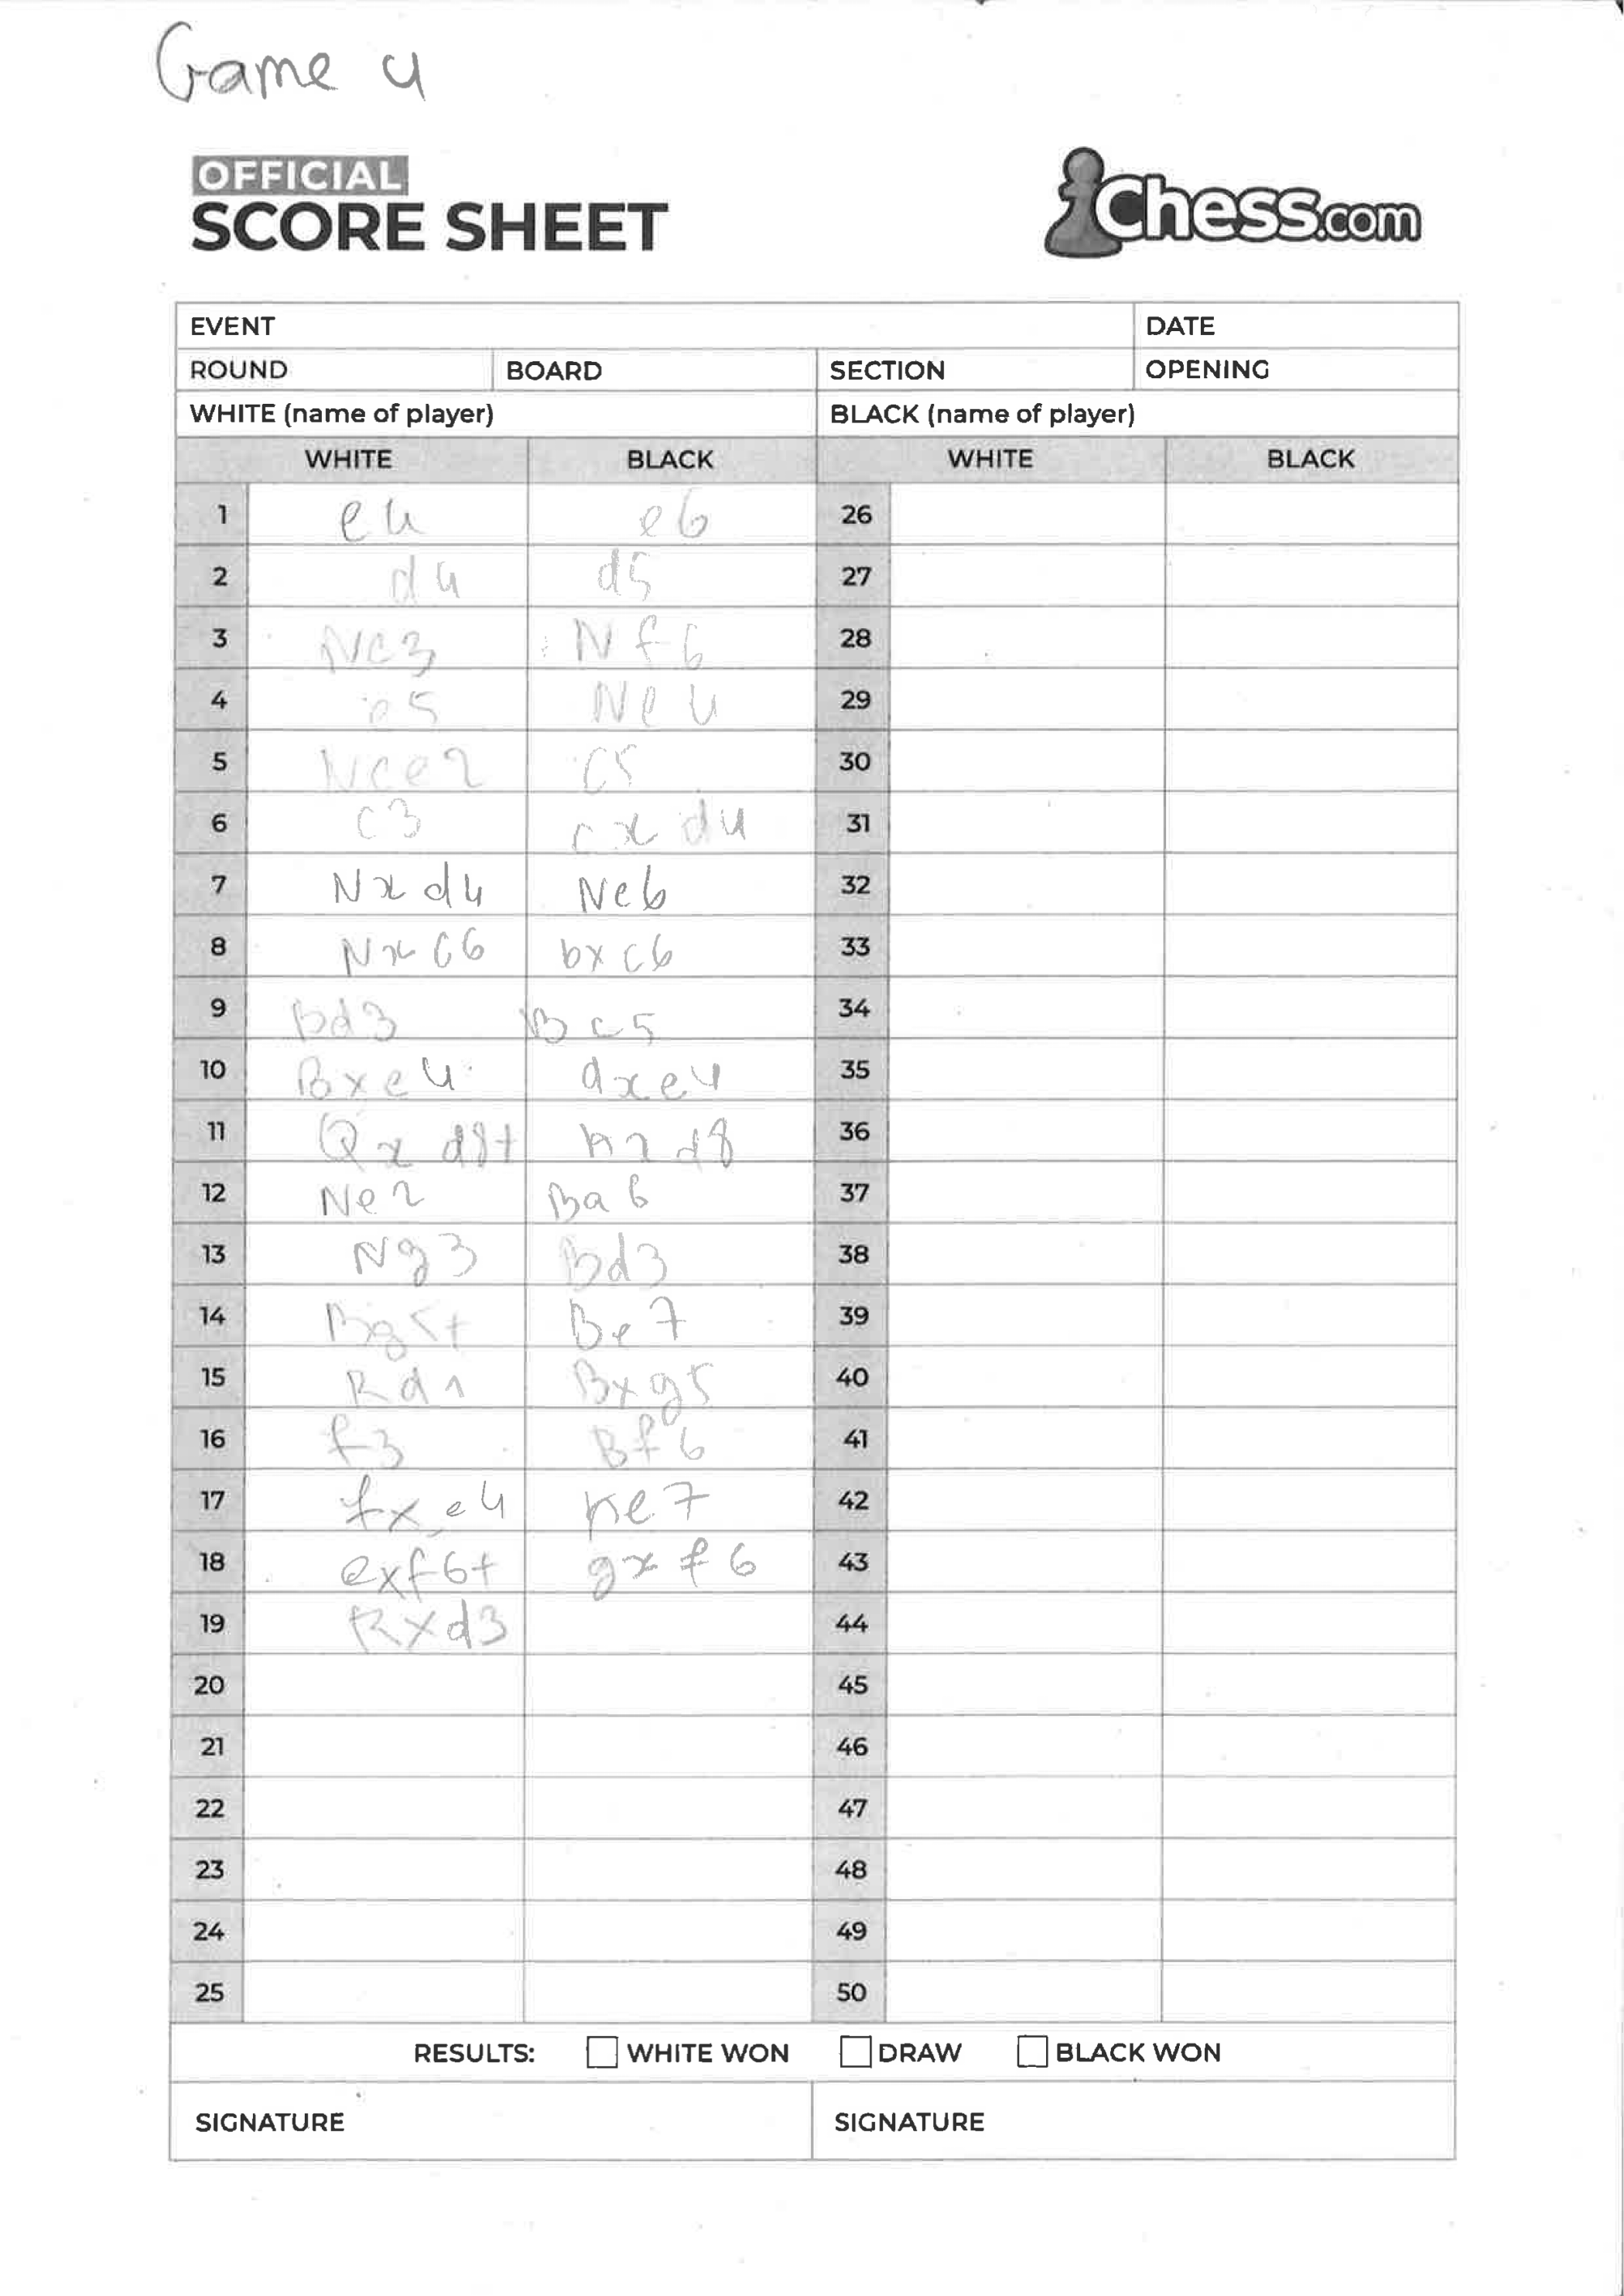 Game 4
OFFICIAL
SCORE SHEET
Chess.com
EVENT DATE
ROUND BOARD SECTION OPENING
WHITE (name of player) BLACK (name of player)
WHITE BLACK WHITE BLACK
1 e4 e6 26
2 d4 d5 27
3 Nc3 Nf6 28
4 e5 Ne4 29
5 Nce2 c5 30
6 c3 cxd4 31
7 Nxd4 Nc6 32
8 Nxc6 bxc6 33
9 Bd3 Bc5 34
10 Bxe4 dxe4 35
11 Qxd8+ Kxd8 36
12 Ne2 Ba6 37
13 Ng3 Bd3 38
14 Bg5+ Be7 39
15 Rd1 Bxg5 40
16 f3 Bf6 41
17 fxe4 Ke7 42
18 exf6+ gxf6 43
19 Rxd3 44
20 45
21 46
22 47
23 48
24 49
25 50
RESULTS: WHITE WON DRAW BLACK WON
SIGNATURE SIGNATURE